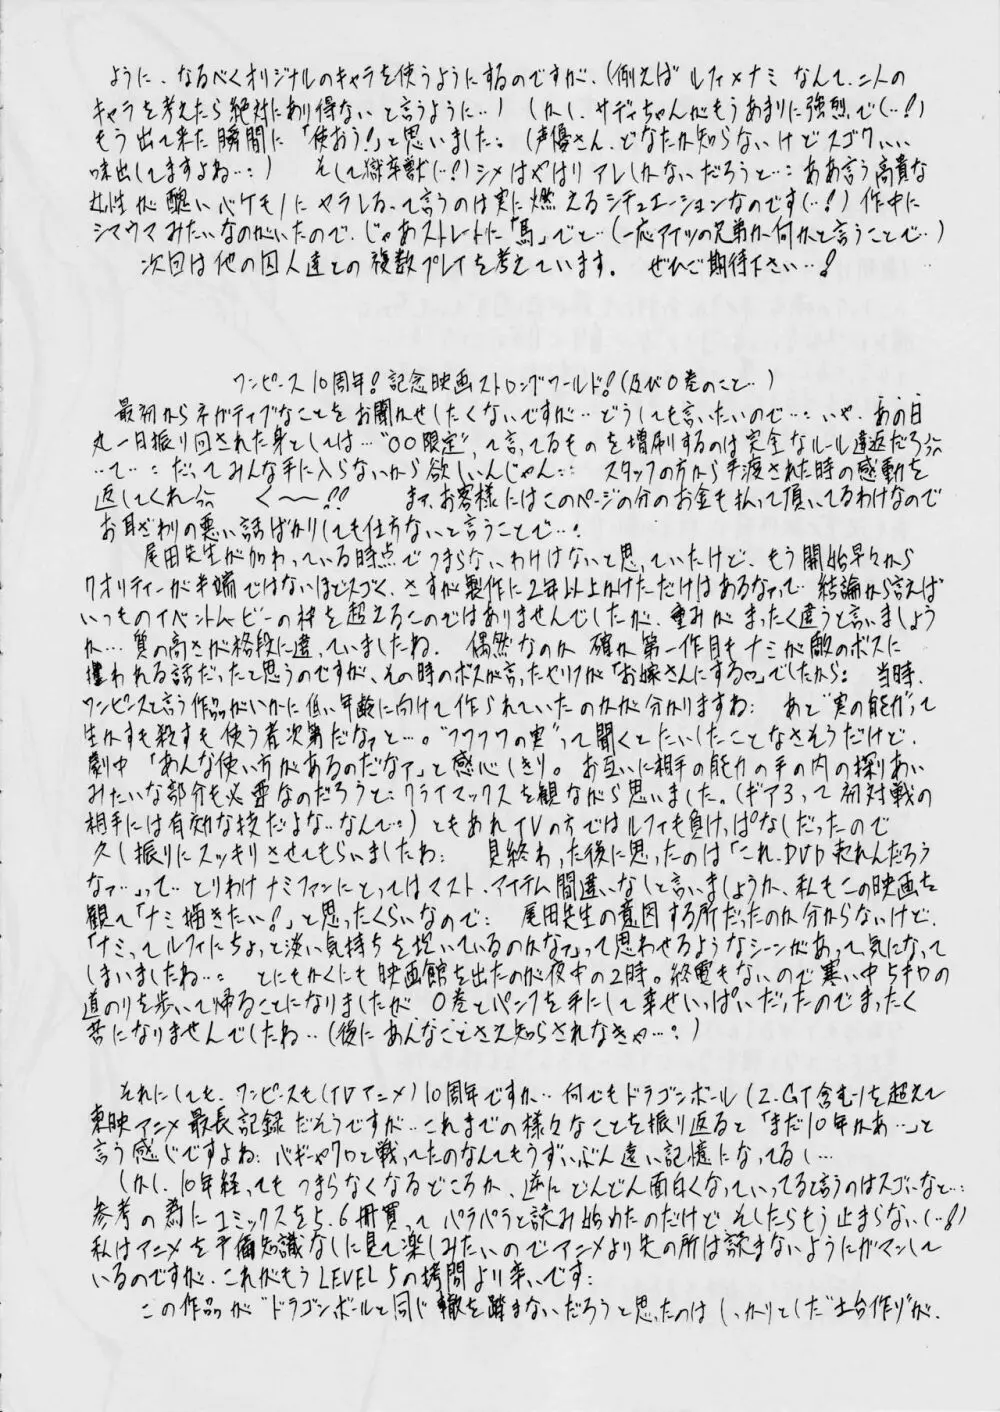 ように、なるべくオリジナルのキャラを使うようにするのですが、(例えば ルフィ×ナミ なんて、二人の
キャラを考えたら絶対にあり得ない と言うように‥) しかし、サディちゃんがもうあまりに強烈で(‥!)
もう出て来た瞬間に「使おう!」と思いました: (声優さん、どなたか知らないけどスゴクいい
味出してますよね‥:) そして獄卒獣(‥!) シメはやはり アレしかないだろうと‥: ああ言う高貴な
女性が醜いバケモノにヤラレるって言うのは実に燃えるシチュエーションなのです(‥!) 作中に
シマウマみたいなのがいたので、じゃあストレートに「馬」でと‥(一応アイツの兄弟か何かと言うことで‥)
次回は他の囚人達との複数プレイを考えています。 ぜひご期待下さい‥!
ワンピース10周年! 記念映画ストロングワールド! (及び0巻のこと‥)
最初からネガティブなことをお聞かせしたくないですが‥どうしても言いたいので‥: いや、あの日
丸一日振り回された身としては‥"〇〇限定"って言ってるものを増刷するのは完全なルール違反だろ
‥て‥: だってみんな手に入らないから欲しいんじゃん:: スタッフの方から手渡された時の感動を
返してくれ く〜!! まァ、お客様にはこのページの分のお金も払って頂いてるわけなので
お耳ざわりの悪い話ばかりしても仕方ないと言うことで‥:
尾田先生が加わっている時点でつまらないわけはないと思っていたけど、もう開始早々から
クオリティーが半端ではないほどスゴく、さすが製作に2年以上かけただけはあるなって‥ 結論から言えば
いつものイベントムービーの枠を超えるものではありませんでしたが、重みがまったく違うと言いましょう
か‥ 質の高さが格段に違っていましたね。 偶然なのか 確か第一作目もナミが敵のボスに
攫われる話だったと思うのですが、その時のボスが言ったセリフが「お嫁さんにする♡」でしたから: 当時、
ワンピースと言う作品がいかに低い年齢に向けて作られていたのかが分かりますね: あと"実の能力"って
生かすも殺すも使う者次第だなァと‥。"フワフワの実"って聞くとたいしたことなさそうだけど、
劇中「あんな使い方があるのだなァ」と感心しきり。お互いに相手の能力の手の内の探りあい
みたいな部分も必要なのだろうと: クライマックスを観ながら思いました。(ギア3って初対戦の
相手には有効な技だよな‥なんて‥:) ともあれTVの方ではルフィも負けっぱなしだったので
久し振りにスッキリさせてもらいましたわ: 見終わった後に思ったのは「これ、DVD売れんだろう
なァ‥」って‥ とりわけナミファンにとってはマスト・アイテム間違いなしと言いましょうか、私もこの映画を
観て「ナミ描きたい!」と思ったくらいなので: 尾田先生の意図する所だったのか分からないけど、
「ナミってルフィにちょっと淡い気持ちを抱いているのかなァ」って思わせるようなシーンがあって、気になって
しまいましたね‥: とにもかくにも映画館を出たのが夜中の2時。終電もないので寒い中5キロの
道のりを歩いて帰ることになりましたが 0巻とパンフを手にして幸せいっぱいだったのでまったく
苦になりませんでしたね‥(後にあんなことさえ知らされなきゃ‥:)
それにしても、ワンピースも(TVアニメ)10周年ですか‥ 何でもドラゴンボール(Z・GT含む)を超えて
東映アニメ最長記録だそうですが‥これまでの様々なことを振り返ると「まだ10年かあ‥」と
言う感じですよね: バギーやクロと戦ってたのなんてもうずいぶん遠い記憶になってるし‥
しかし、10年経ってもつまらなくなるどころか、逆にどんどん面白くなっていってると言うのはスゴいなと‥:
参考の為にコミックスを5、6冊買ってパラパラと読み始めたのだけど そしたらもう止まらない(‥!)
私はアニメを予備知識なしに見て楽しみたいのでアニメより先の所は読まないようにガマンして
いるのですが、これがもうLEVEL5の拷問より辛いです:
この作品が"ドラゴンボールと同じ轍を踏まないだろうと思ったのは しっかりとした"土台作り"が、